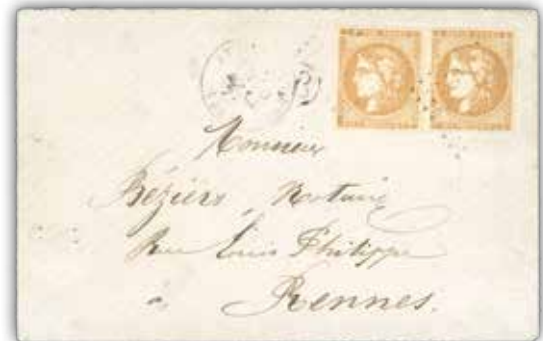 Monsieur
Béziers, Notaire
Rue Louis Philippe
à Rennes.